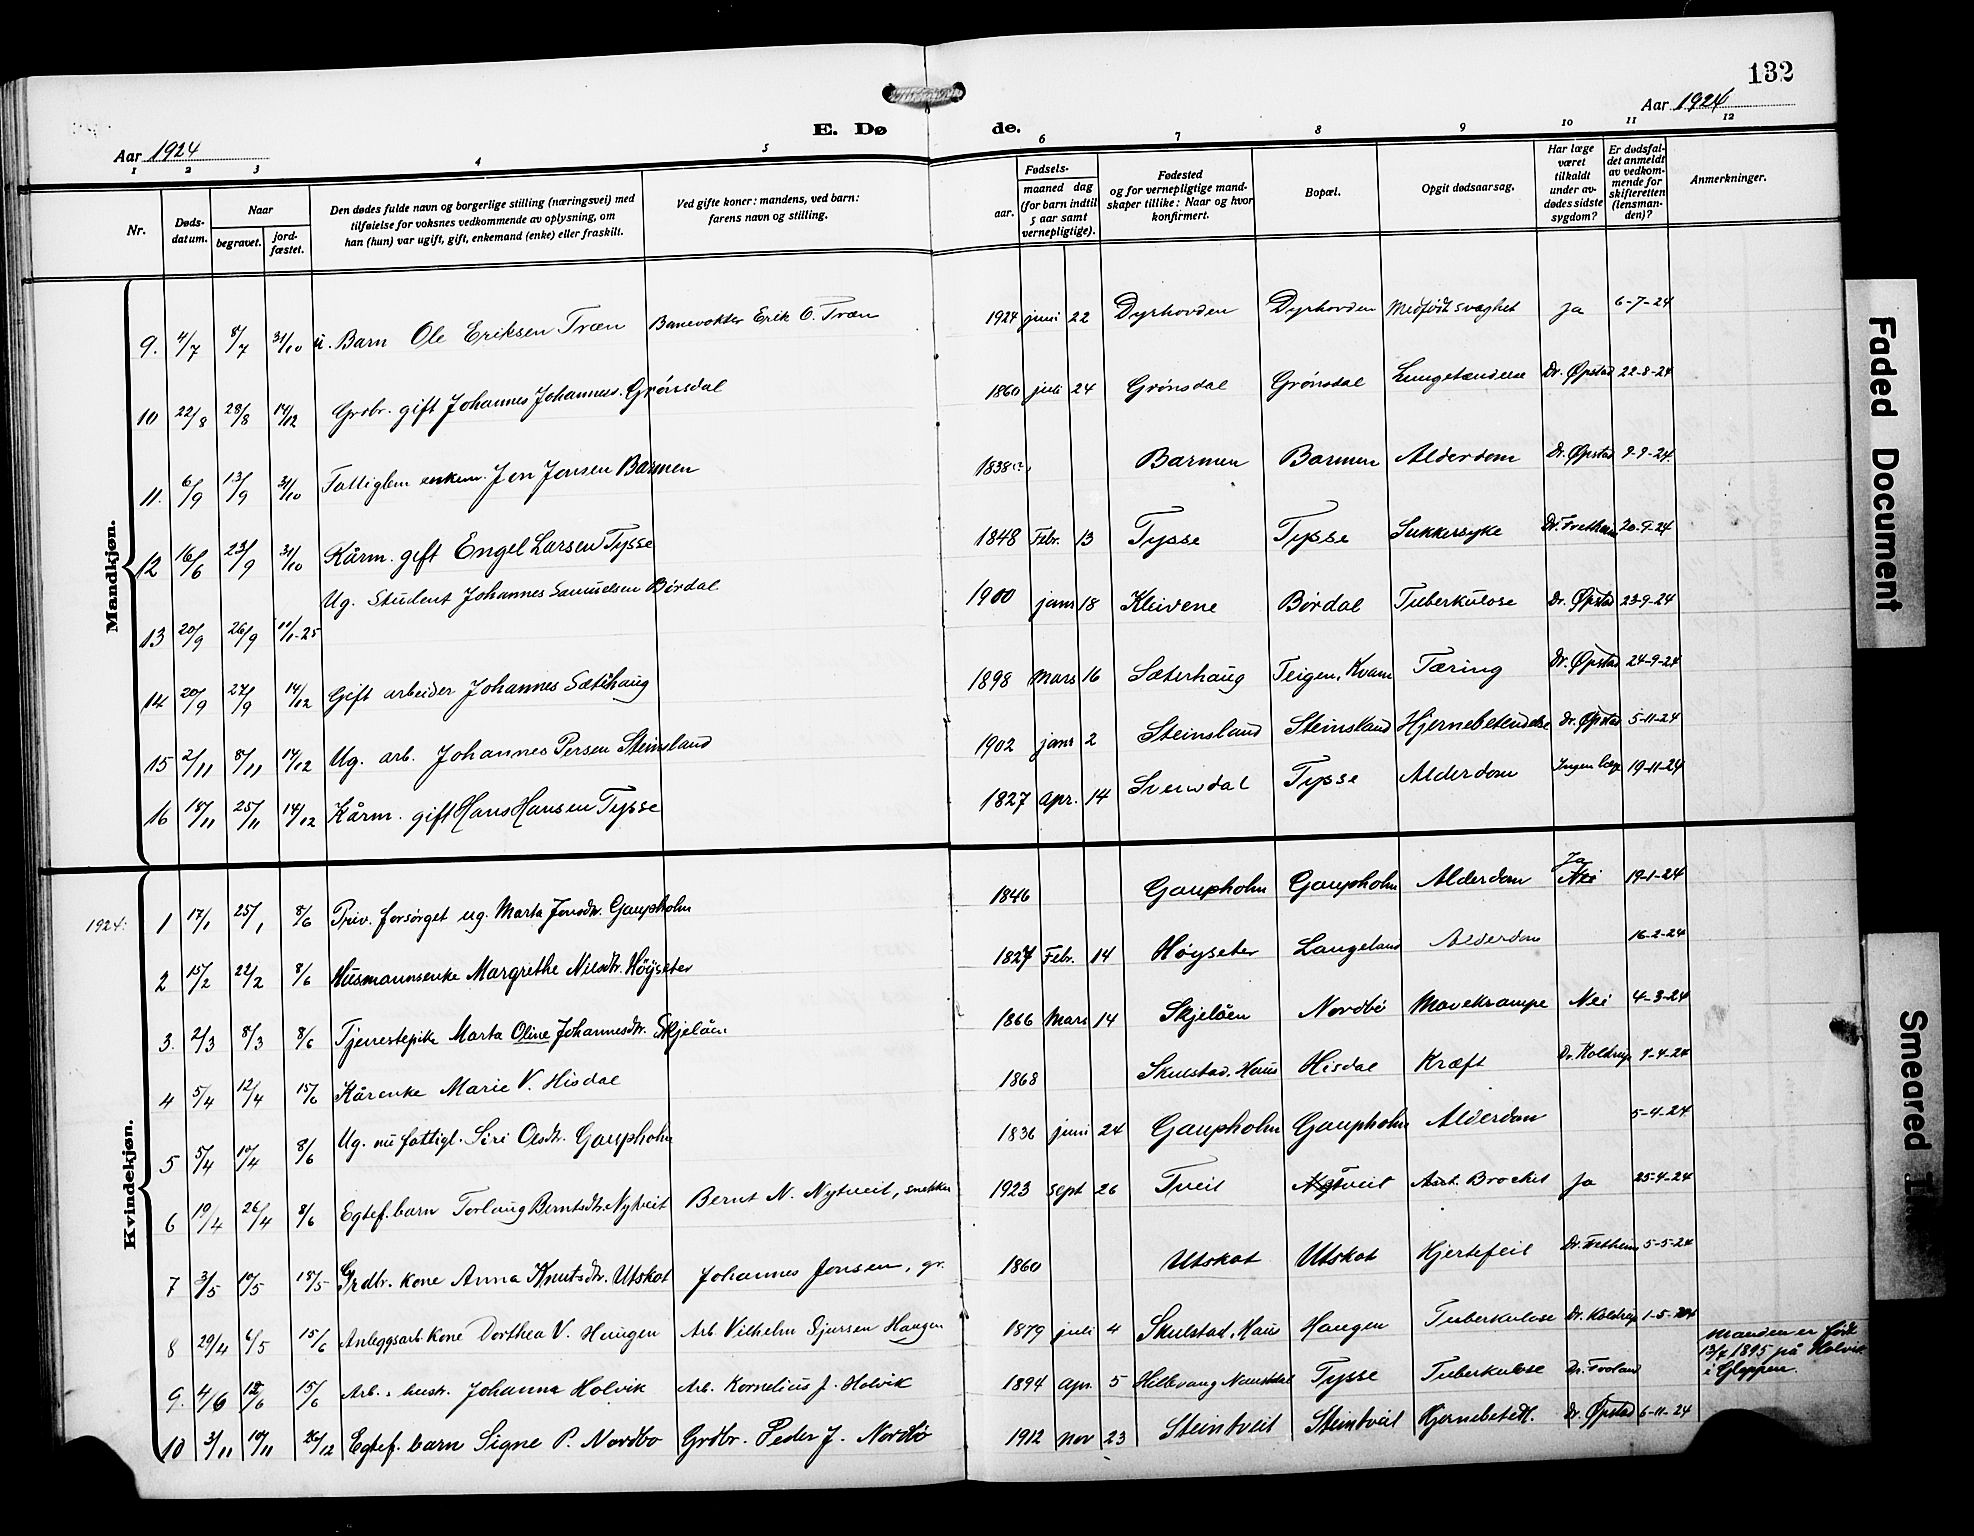 132
Aar 1924
Aar 1924
E. Dø de.
1 2 3 4 5 6 7 8 9 10 11 12
Nr.
Døds-datum.
Naar
begravet.
jord-fæstet.
Den dødes fulde navn og borgerlige stilling (næringsvei) med tilføielse for voksnes vedkommende av oplysning, om han (hun) var ugift, gift, enkemand (enke) eller fraskilt.
Ved gifte koner: mandens, ved barn: farens navn og stilling.
Fødsels-
aar.
maaned dag (for barn indtil 5 aar samt vernepligtige).
Fødested og for vernepligtige mand-skaper tillike: Naar og hvor konfirmert.
Bopæl.
Opgit dødsaarsag.
Har læge været tilkaldt under av-dødes sidste sygdom?
Er dødsfal-det anmeldt av vedkom-mende for skifteretten (lensman-den)?
Anmerkninger.
Mandkjøn.
9. 4/7 8/7 31/10 u. Barn Ole Eriksen Træn Banevokter Erik O. Træn 1924 juni 22 Dyrhovden Dyrhovden Medfödt svaghet ja 6-7-24
10 22/8 28/8 14/12 Grdbr. gift Johannes Johannes. Grönsdal 1860 juli 24 Grönsdal Grönsdal Lungebetændelse Dr. Øpstad 22-8-24
11. 6/9 13/9 31/10 Fattiglem enkem. Jon Jonsen Barmen 1838 Barmen Barmen Alderdom Dr. Øpstad 9-9-24.
12 16/6 23/9 31/10 Kårm. gift Engel Larsen Tysse 1848 Febr. 13 Tysse Tysse Sukkersyke Dr. Fretheim 20-9-24
13 20/9 26/9 11/1-25 Ug. Student Johannes Samuelsen Bördal 1900 janr 18 Kleivene Bördal Tuberkulose Dr. Øpstad 23-9-24
14 20/9 27/9 14/12 Gift arbeider Johannes Sæterhaug 1898 Mars 16 Sæterhaug Teigen, Kvam Tæring Dr. Øpstad 24-9-24
15 2/11 8/11 14/12 Ug. arb. Johannes Persen Steinsland 1902 janr 2 Steinsland Steinsland Hjernebetendelse Dr. Øpstad 5-11-24
16 18/11 25/11 14/12 Kårm. gift Hans Hansen Tysse 1827 Apr. 14 Svendal Tysse Alderdom Ingen læge 19-11-24
Kvindekjøn.
1924: 1 17/1 25/1 8/6 Priv. forsörget ug. Marta Jonsdtr. Gaupholm 1846 Gaupholm Gaupholm Alderdom Ja Nei 19-1-24
2 15/2 22/2 8/6 Husmannsenke Margrethe Nilsdtr. Höyseter 1827 Febr. 14 Höyseter Langeland Alderdom 16-2-24
3. 2/3 8/3 8/6 Tjenestepike Marta Oline Johannesdtr. Skjelåen 1866 Mars 14 Skjelåen Nordbö Mavekrampe Nei 4-3-24
4 5/4 12/4 15/6 Kårenke Marie V. Hisdal 1868 Skulstad, Haus Hisdal Kræft Dr. Koldrup 9-4-24
5 5/4 10/4 8/6 Ug. nu fattigl. Siri Olsdtr. Gaupholm 1836 juni 24 Gaupholm Gaupholm Alderdom 5-4-24
6 19/4 26/4 8/6 Egtef. barn Torlaug Berntsdtr. Nytveit Bernt N. Nytveit, snekker 1923 Sept 26 Tveit Tveit Akut. Brockit ja 25-4-24
7 3/5 10/5 18/5 Grdbr. kone Anna Knutsdtr. Utskot Johannes Jonsen, gr. 1860 Utskot Utskot Hjertefeil Dr. Fretheim 5-5-24
8 29/4 6/5 15/6 Anleggsarb. kone Dorthea V. Haugen Arb. Vilhelm Sjursen Haugen 1879 juli 4 Skulstad, Haus Haugen Tuberkulose Dr. Koldrup 1-5-24
9. 4/6 12/6 15/6 Arb. s hustr. Johanna Holvik Arb. Kornelius J. Holvik 1894 Apr. 5 Hellevang Naustdal Tysse Tuberkulose Dr. Forland
Manden er född 13/7 1895 på Holvik
i Gloppen.
10 3/11 10/11 26/12 Egtef. barn Signe P. Nordbö Grdbr. Peder J. Nordbö 1912 Nov 23 Steintveit Steintveit Hjernebetedl. Dr. Øpstad 6-11-24
Faded Document
Smeared